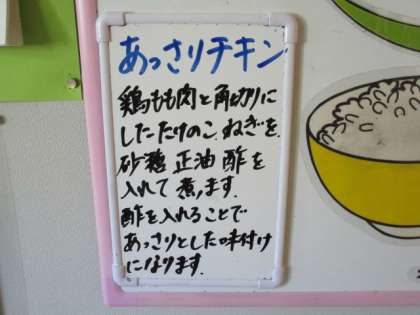 あっさりチキン
鶏もも肉と角切りに
したたけのこ、ねぎを、
砂糖 正油 酢を
入れて煮ます。
酢を入れることで
あっさりとした味付け
になります。